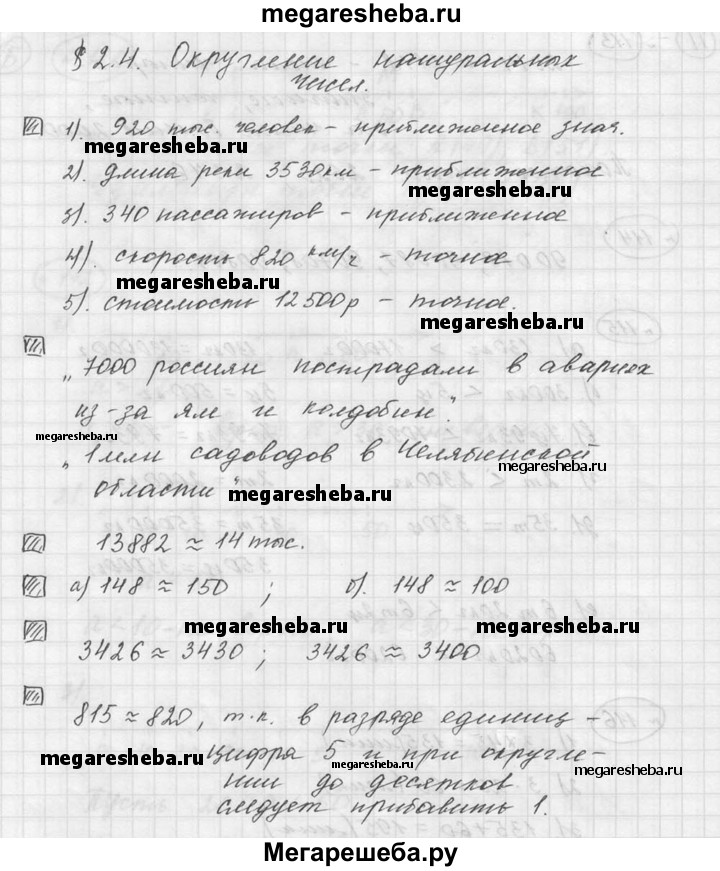 megaresheba.ru
§ 2.4. Округление натуральных
чисел.
1). 920 тыс. человек – приближенное знач.
megaresheba.ru
2). длина реки 3530км – приближенное
megaresheba.ru
3). 340 пассажиров – приближенное
4). скорость 820 км/ч – точное
megaresheba.ru
5). стоимость 12500р – точное.
megaresheba.ru
„7000 россиян пострадали в авариях
из-за ям и колдобин".
megaresheba.ru
„1 млн садоводов в Челябинской
megaresheba.ru
области"
13882 ≈ 14 тыс.
а) 148 ≈ 150 ; б). 148 ≈ 100
megaresheba.ru megaresheba.ru
3426 ≈ 3430 ; 3426 ≈ 3400
815 ≈ 820, т.к. в разряде единиц –
megaresheba.ru цифра 5 и при округле-
megaresheba.ru
нии до десятков megaresheba.ru
следует прибавить 1.
Мегарешеба.ру